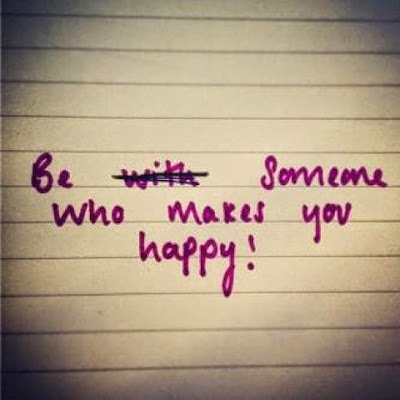 Be with Someone
who makes you
happy!